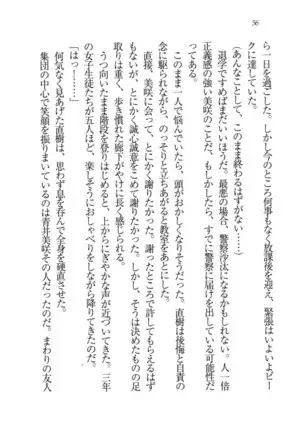 56
ら一日を過ごした。しかし今のところ何事もなく放課後を迎え、緊張はいよいよピー
クに達していた。
（あんなことして、このまま終わるはずがない……）
退学ですめばまだいいほうだ。最悪の場合、警察沙汰になるかもしれない。人一倍
正義感の強い美咲のことだ、もしかしたら、すでに警察に届けを出している可能性だ
ってある。
このまま一人で悩んでいたら、頭がおかしくなりそうだった。直樹は後悔と自責の
念に駆られながら、のっそりと立ちあがると教室をあとにした。
直接、美咲に会って、とにかく謝りたかった。謝ったところで許してもらえるはず
もないが、とにかく誠心誠意をこめて謝りたかった。しかし、そうは決めたものの足
取りは重く、歩き慣れた廊下がやけに長く感じられる。
うつ向いたまま階段を登りはじめると、上からにぎやかな声が近づいてきた。三年
の女子生徒たちが五人ほど、楽しそうにおしゃべりをしながら降りてきたのだ。
「はっ……」
何気なく見あげた直樹は、思わず息を呑んで全身を硬直させた。
集団の中心で笑顔を振りまいているのは青井美咲その人だったのだ。まわりの友人